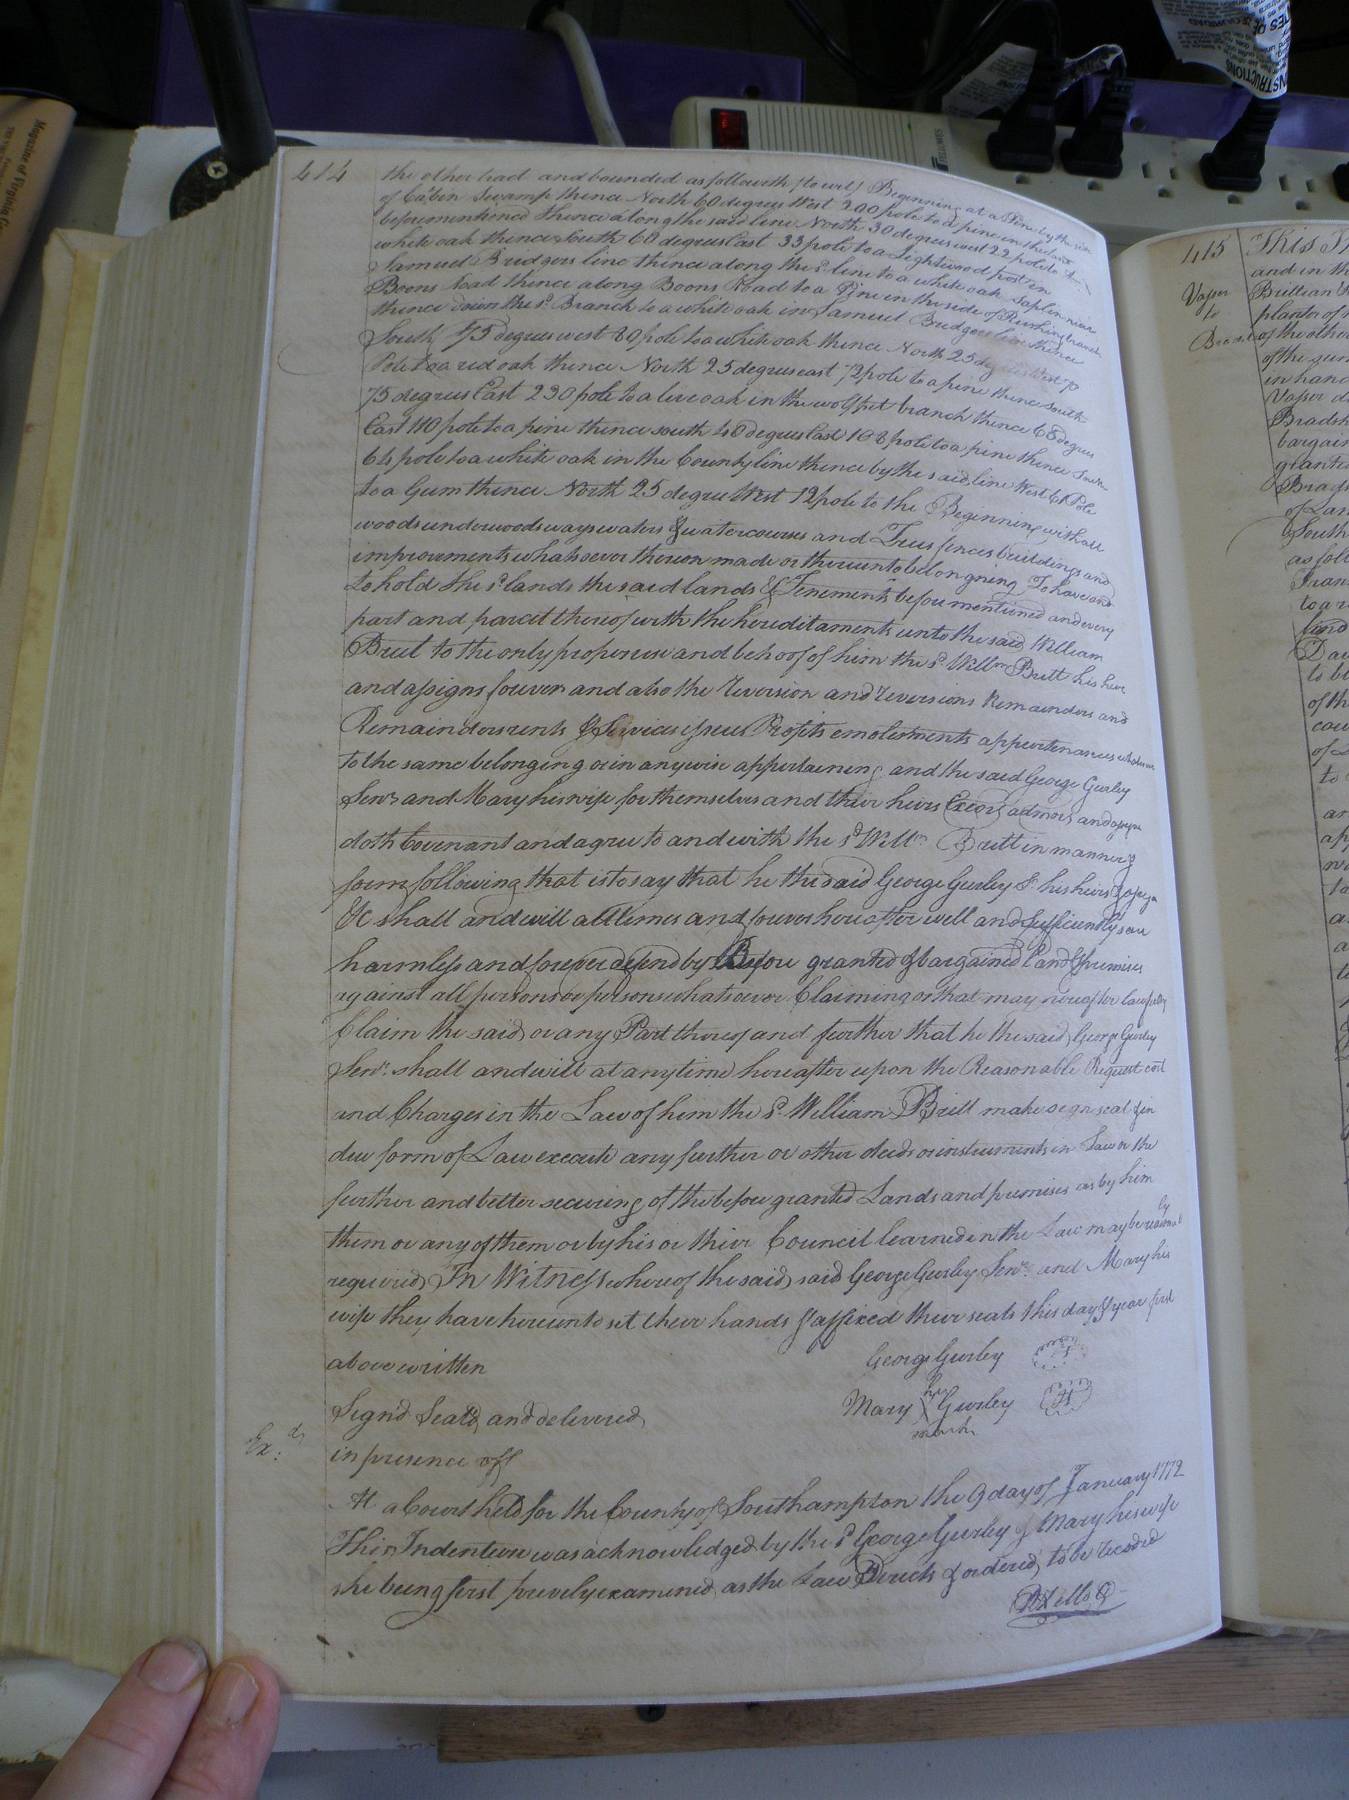 414
the other tract and bounded as followeth (to wit) Beginning at a Pine by the run
of Cabin Swamp thence North 60 degrees West 200 pole to a pine in the
beforementioned thence along the said line North 30 degrees west 22 pole to a
white oak thence South 60 degrees East 33 pole to a Lightwood post in
Samuel Bridgers line thence along the sd. line to a white oak saplin near
Boons Road thence along Boons Road to a Pine in the side of Rushing branch
thence down the sd. Branch to a white oak in Samuel Bridgers line thence
South 75 degrees west 80 pole to a white oak thence North 25 degrees West 70
Pole to a red oak thence North 25 degrees east 72 pole to a pine thence South
75 degrees East 230 pole to a live oak in the wolf pit branch thence 68 degrees
East 110 pole to a pine thence south 48 degrees East 108 pole to a pine thence South
64 pole to a white oak in the County line thence by the said line West 61 Pole
to a Gum thence North 25 degrees West 12 pole to the Beginning with all
woods underwoods ways waters & watercourses and Trees fences buildings and
improvments whatsoever thereon made or thereunto belongning To have and
to hold the sd. lands the said lands & Tenements before mentioned and every
part and parcel thereof with the hereditaments unto the said William
Britt to the only proper use and behoof of him the sd. Willm Britt his heirs
and assigns forever and also the Reversion and Reversions Remainders and
Remainders rents & Services issues Profits emolements appertenances whatsoever
to the same belonging or in anywise appertaining and the said George Gurley
Senr. and Mary his wife for themselves and their heirs Exors admrs and assigns
doth Covenant and agree to and with the sd. Willm Britt in manner &
form following that is to say that he the said George Gurley Sr. his heirs & assigns
&c shall and will all times and forever hereafter well and sufficiently save
harmless and forever defend by Before granted & bargained Land & premises
against all persons or persons whatsoever Claiming or that may hereafter lawfully
Claim the said or any Part thereof and further that he the said George Gurley
Senr. shall and will at anytime hereafter upon the Reasonable Request cost
and Charges in the Law of him the sd. William Britt make sign seal & in
due form of Law execute any further or other deeds or instruments in Law or the
further and better securing of the before granted Lands and premises as by him
them or any of them or by his or their Council learned in the Law may be reasonably
required In Witness whereof the said said George Gurley Senr. and Mary his
wife they have hereunto set their hands & affixed their seals this day & year first
above written
George Gurley
Mary her X mark Gurley
Sign'd Seal'd and delivered
in presence off
Exd.
At a Court held for the County of Southampton the 9 day of January 1772
This Indenture was acknowledged by the sd. George Gurley & Mary his wife
she being first prively examined as the Law Directs & ordered to be recorded
R Kello C
415
Vaser
to
Brad
This I
and in th
Brittian
planter of
of the other
of the
in hand
Vaser d
Bradsh
bargain
granted
Brads
of Lan
South
as foll